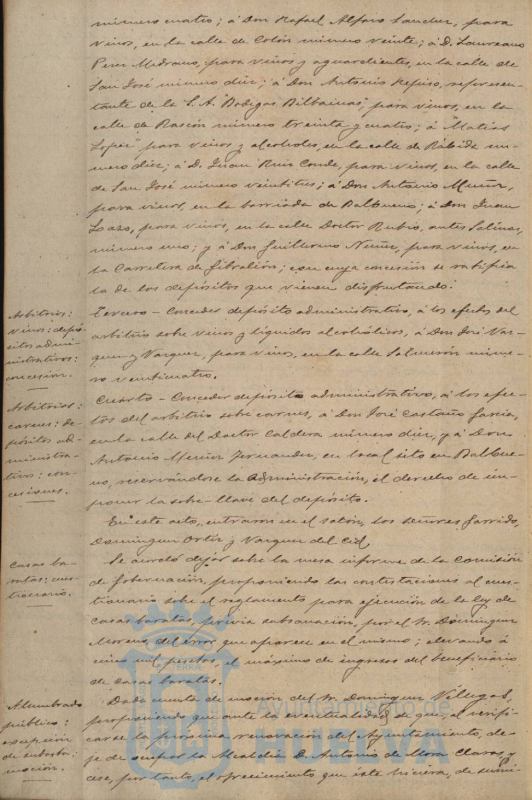 número cuatro; á Don Rafael Alfaro Sanchez, para
vinos, en la calle de Colón número veinte; á D. Laureano
Perez Medrano, para vinos y aguardientes, en la calle de
San José número diez; á Don Antonio Repiso, represen-
tante de la S. A. "Bodegas Bilbainas", para vinos, en la
calle de Rascón número treinta y cuatro; á "Matias
Lopez" para vinos y alcoholes, en la calle de Rábida nú-
mero diez; á D. Juan Ruiz Conde, para vinos, en la calle
de San José número veintitres; á Don Antonio Muñoz,
para vinos, en la barriada de Balbueno; á Don Juan
Lazo, para vinos, en la calle Doctor Rubio, antes Salinas,
número uno; y á Don Guillermo Nuñez, para vinos, en
la Carretera de Gibraleón; con cuya concesión se ratifica
la de los depósitos que vienen disfrutando.
Arbitrios:
vinos: depó-
sitos admi-
nistrativos:
concesión.
Tercero - Conceder depósito administrativo, á los efectos del
arbitrio sobre vinos y líquidos alcohólicos, á Don José Vaz-
quez y Vazquez, para vinos, en la calle Salmerón núme-
ro veinticuatro.
Arbitrios:
carnes: de-
pósitos ad-
ministra-
tivos: con-
cesiones.
Cuarto - Conceder depósito administrativo, á los efec-
tos del arbitrio sobre carnes, á Don José Castaño Garcia,
en la calle del Doctor Caldera número diez, y á Don
Antonio Muñoz Fernandez, en local sito en Balbue-
no, reservándose la Administración, el derecho de im-
poner la sobre-llave del depósito.
En este acto, entraron en el salón, los señores Garrido,
Dominguez Ortiz y Vazquez del Cid.
Casas ba-
ratas: cues-
tionario.
Se acordó dejar sobre la mesa informe de la Comisión
de Gobernación, proponiendo las contestaciones al cues-
tionario sobre el reglamento para ejecución de la Ley de
casas baratas, previa subsanación, por el Sr. Dominguez
Moreno, del error que aparece en el mismo; elevando á
cinco mil pesetas, el máximo de ingresos del beneficiario
de casas baratas.
Alumbrado
público:
excepción
de subasta:
moción.
Dada cuenta de moción del Sr. Dominguez Villegas,
proponiendo que ante la eventualidad de que, al verifi-
carse la próxima renovación del Ayuntamiento, de-
je de ocupar la Alcaldía D. Antonio de Mora Claros y
cese, por tanto, el ofrecimiento que éste hiciera, de sumi-
Ayuntamiento de
HUELVA